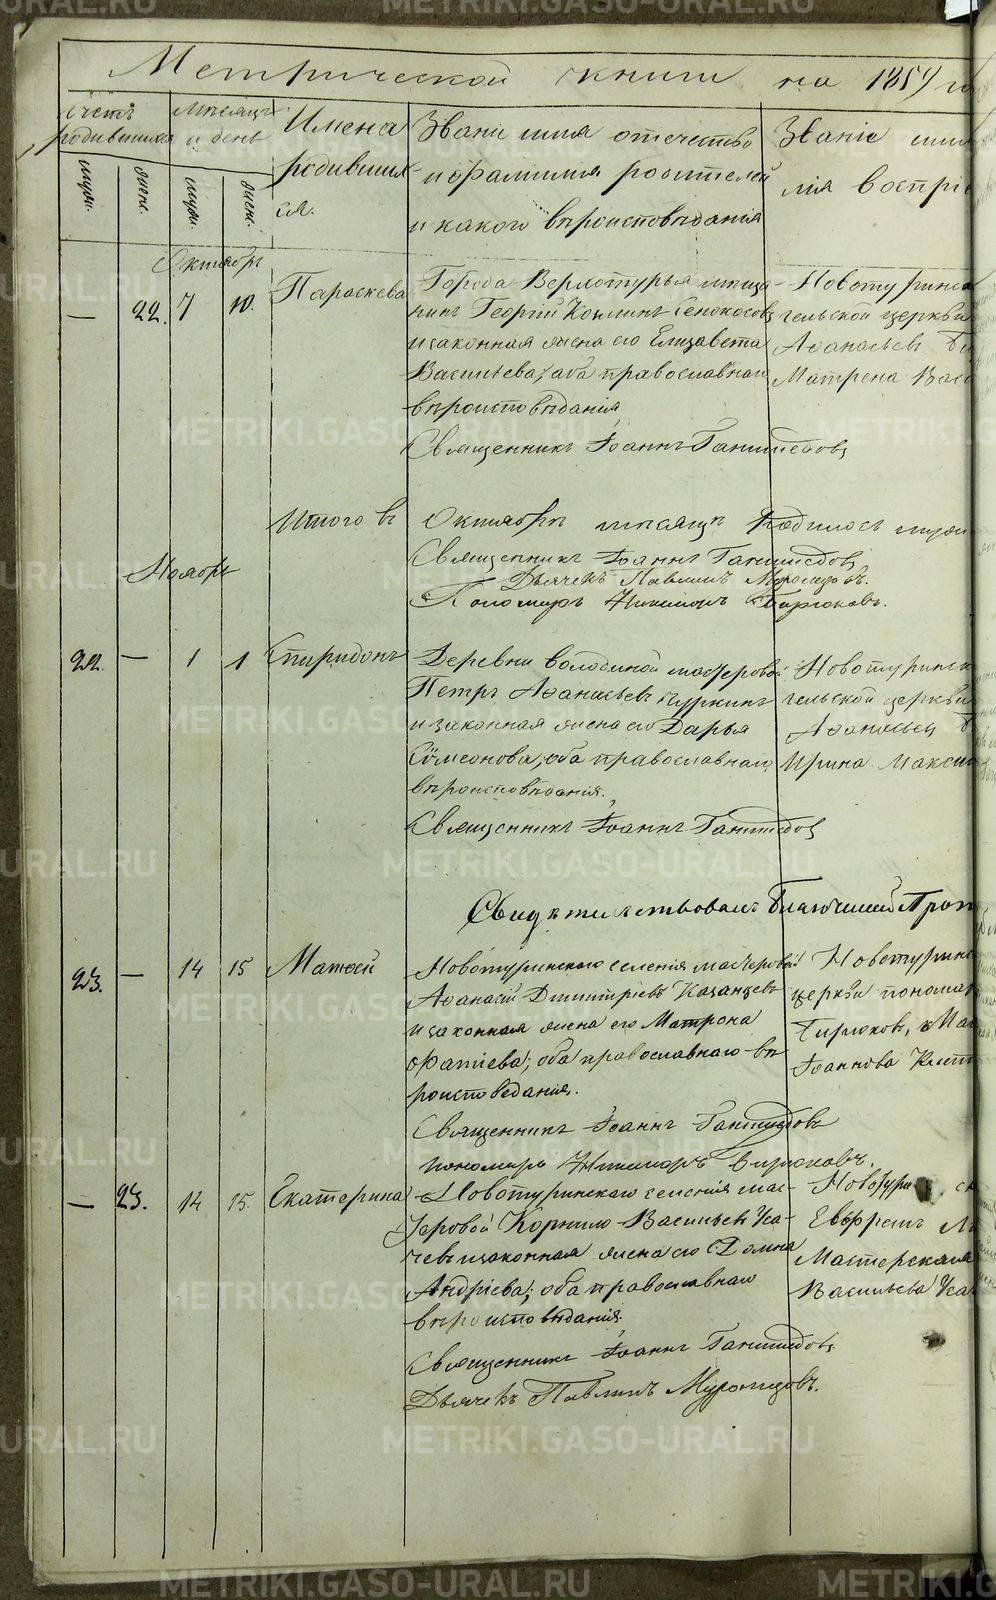 Метрической книги на 1857 го
Счетъ родившихся
Мѣсяцъ и день
Имена родившихся.
Званіе имя отечество и фамилія родителей и какого вѣроисповѣданія
Званіе имя
лія воспріе
муж.
женс.
муж.
женс.
Октябрь
— 22. 7 10. Параскева
Города Верхотурья мѣща-
нинъ Георгій Козминъ Сенокосовъ
и законная жена его Елизавета
Васильева; оба православнаго
вѣроисповѣданія
Священникъ Іоаннъ
Новотуринс
тельской церкви
Афанасьевъ Би
Матрена Васи
Итого въ Октябрѣ мѣсяцѣ родилось муж
Священникъ Іоаннъ
Дьячекъ Павлинъ
Пономарь Никаноръ Бирюковъ.
Ноябрь
22. — 1 1 Спиридонъ
Деревни Володиной мастеровой
Петръ Афанасьевъ Чуркинъ
и законная жена его Дарья
Самсонова; оба православнаго
вѣроисповѣданія.
Священникъ Іоаннъ
Новотуринск
тельской церкви
Афанасьевъ Б
Ирина Макси
Свидѣтельствовалъ Благочинный Прот
23. — 14 15 Матѳей
Новотуринскаго селенія мастеровой
Афанасій Дмитріевъ Казанцевъ
и законная жена его Матрона
Фатіева; оба православнаго вѣ-
роисповеданія.
Священникъ Іоаннъ
Пономарь Никаноръ Бирюковъ.
Новотуринс
церкви понома
Бирюковъ, и Ма
Іоаннова
— 23. 14 15. Екатерина
Новотуринскаго селенія мас-
теровой Корнило Васильевъ Уса-
чевъ и законная жена его Домна
Андріева; оба православнаго
вѣроисповѣданія.
Священникъ Іоаннъ
Дьячекъ Павлинъ
Новотурин
Евфремъ
Мастерская
Васильева Уса
METRIKI.GASO-URAL.RU